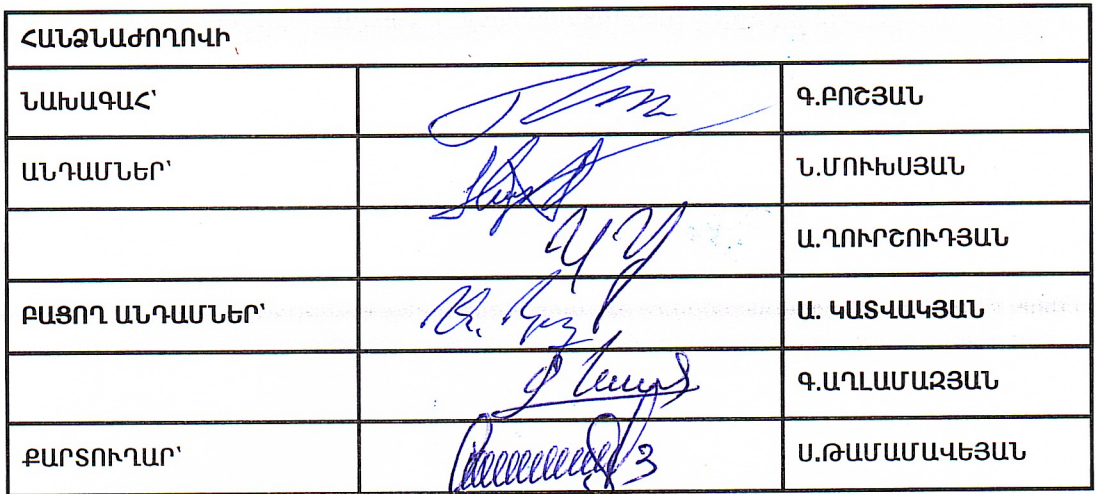 ՀԱՆՁՆԱԺՈՂՈՎԻ
ՆԱԽԱԳԱՀ՝ Գ.ԲՈՇՅԱՆ
ԱՆԴԱՄՆԵՐ՝ Ն.ՄՈՒԽՍՅԱՆ
Ա.ՂՈՒՐՇՈՒԴՅԱՆ
ԲԱՑՈՂ ԱՆԴԱՄՆԵՐ՝ Ա. ԿԱՏՎԱԿՅԱՆ
Գ.ԱՂԼԱՄԱԶՅԱՆ
ՔԱՐՏՈՒՂԱՐ՝ Ս.ԹԱՄԱՄԱՎԵՅԱՆ